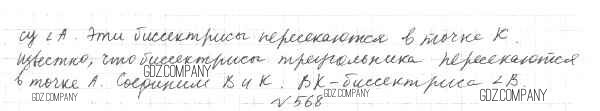 су ∠A. Эти биссектрисы пересекаются в точке K.
Известно, что биссектрисы треугольника пересекаются
GDZ.COMPANY GDZ.COMPANY
в точке A. Соединим B и K. BK - биссектриса ∠B.
GDZ.COMPANY GDZ.COMPANY
№568